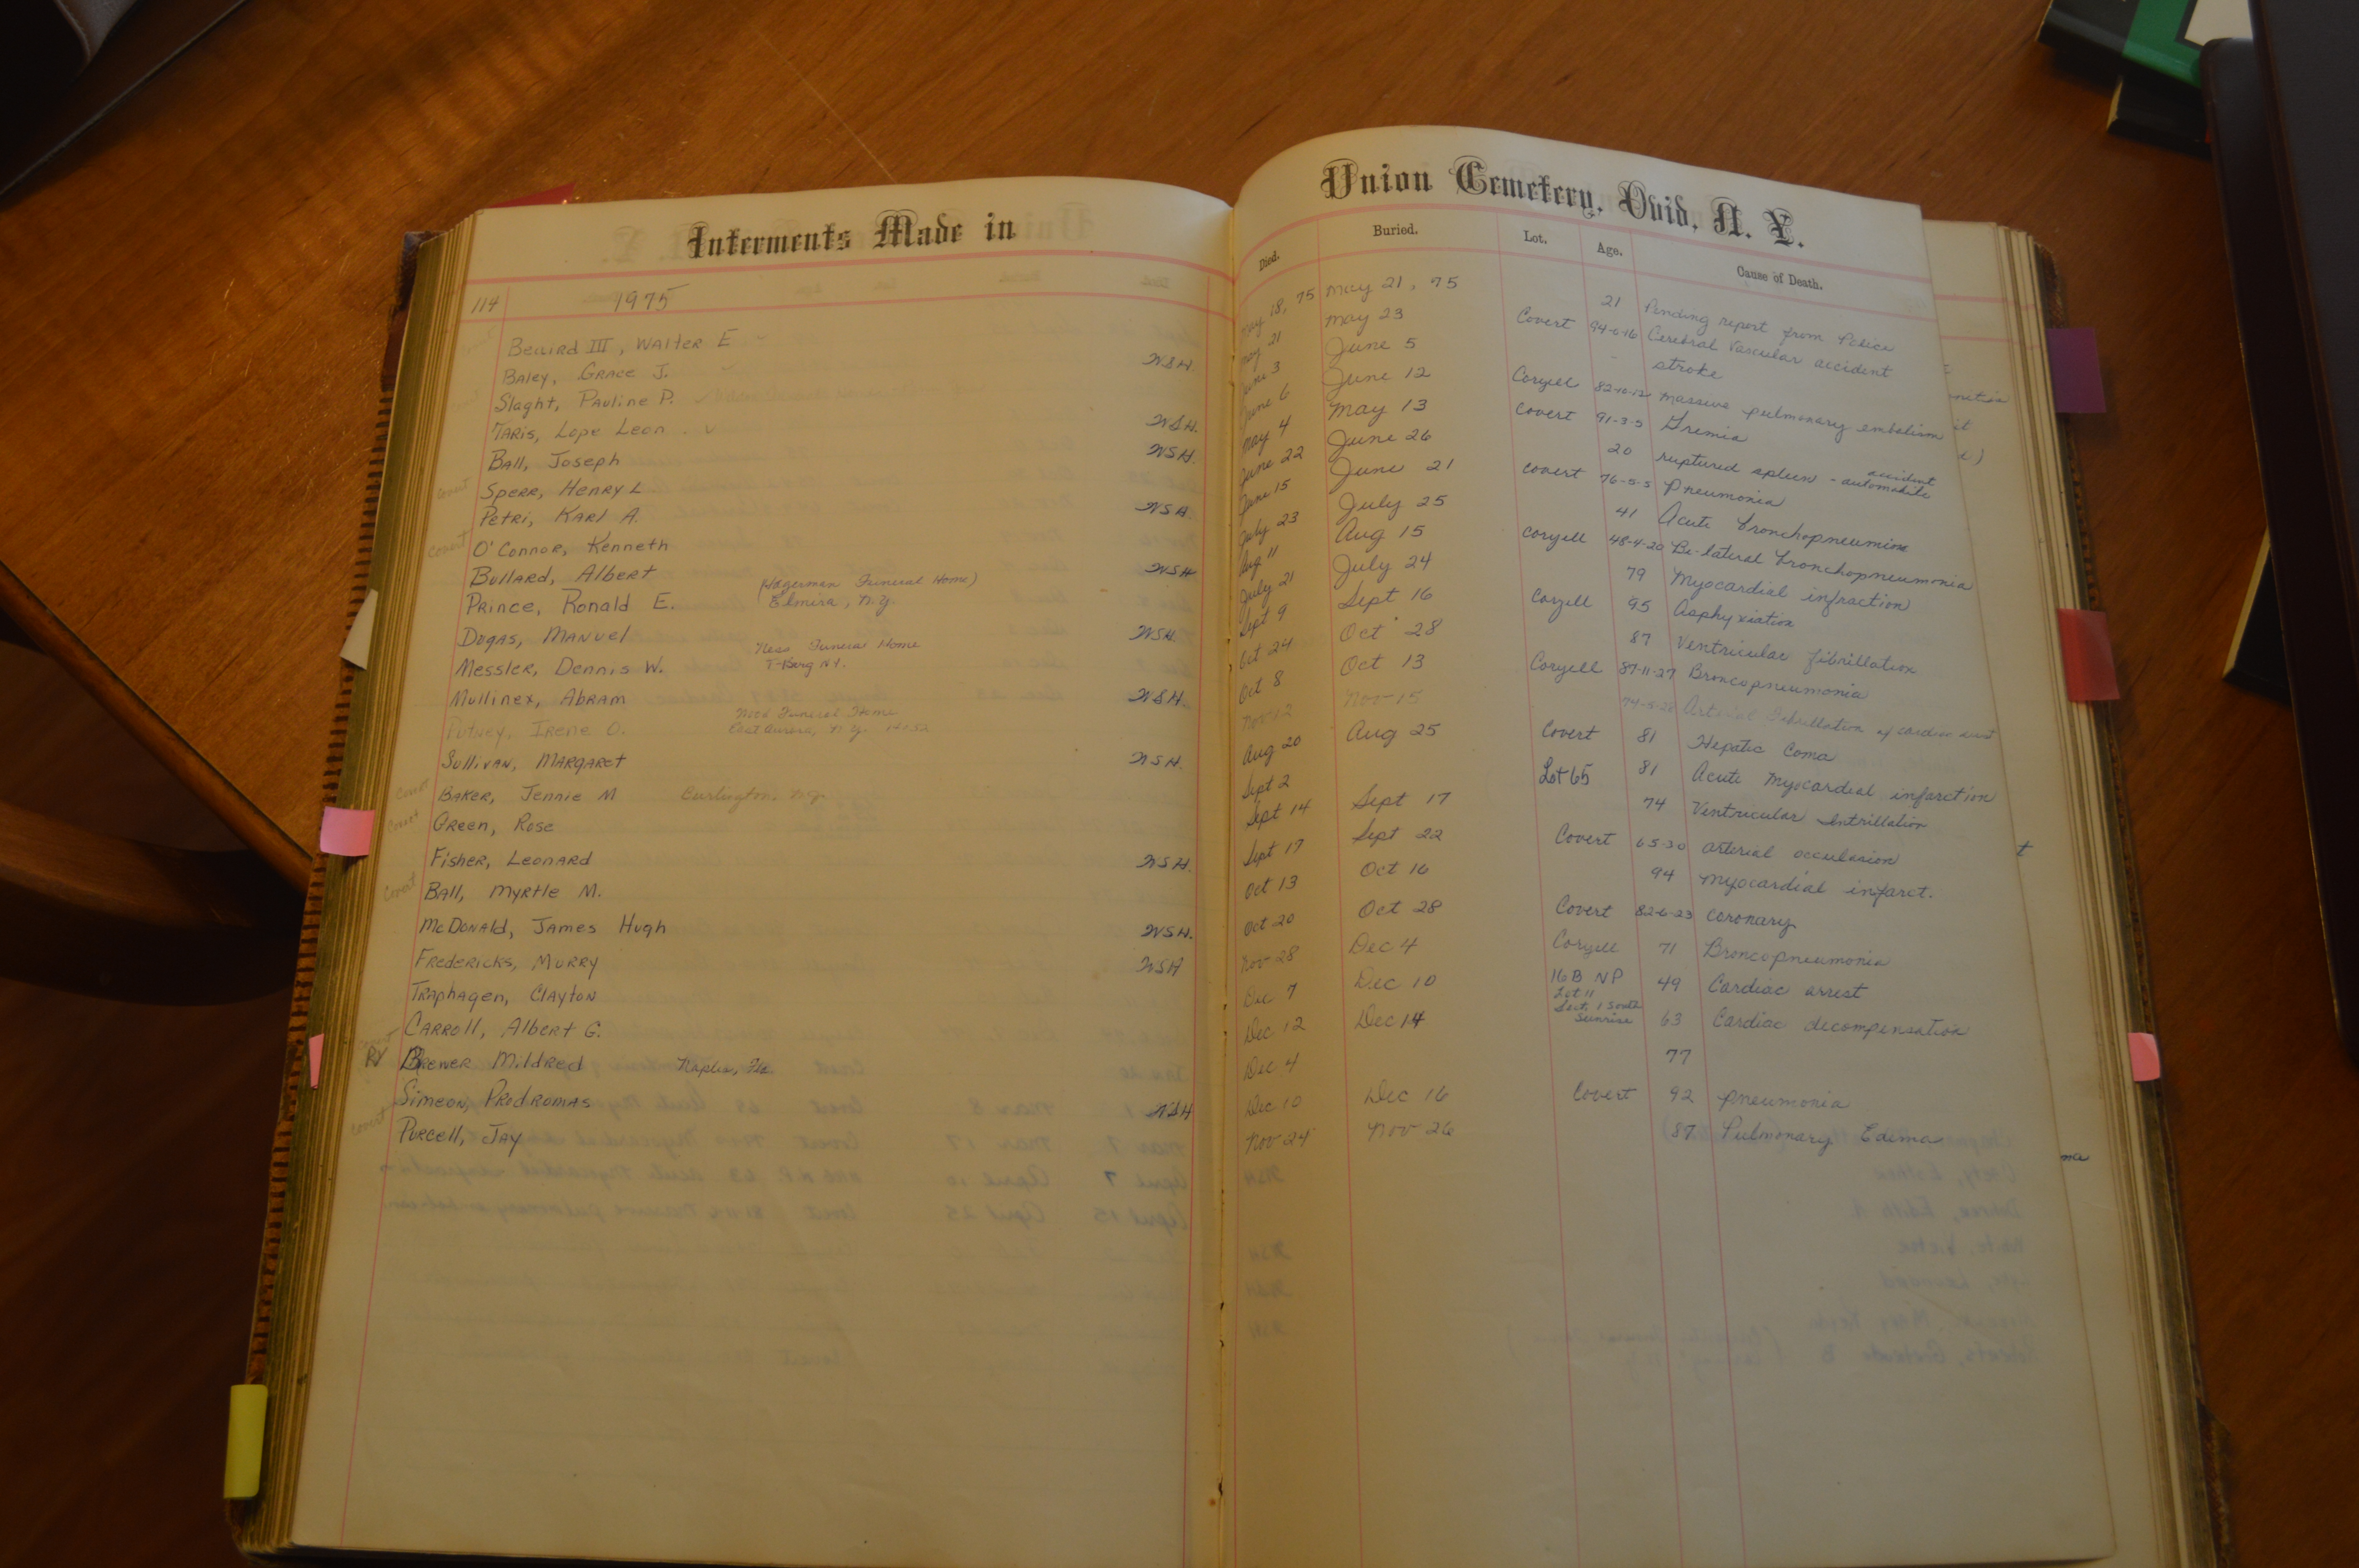 Interments Made in
114 1975
Bellird III, Walter E
Baley, Grace J. WSH.
Slaght, Pauline P.
Taris, Lope Leon WSH.
Ball, Joseph WSH.
covert Sperr, Henry L.
Petri, Karl A. WSH.
covert O'Connor, Kenneth
Bullard, Albert WSH
(Hagerman Funeral Home)
Prince, Ronald E. Elmira, N.Y.
Dugas, Manuel WSH.
Ness Funeral Home
Messler, Dennis W. T-Burg N.Y.
Mullinex, Abram WSH.
Wood Funeral Home
Putney, Irene O. East Aurora, N.Y. 14052
Sullivan, Margaret WSH.
covert Baker, Jennie M Burlington, N.J.
covert Green, Rose
Fisher, Leonard WSH.
covert Ball, Myrtle M.
McDonald, James Hugh WSH.
Fredericks, Murry WSH
Traphagen, Clayton
Carroll, Albert G.
Brewer Mildred Naples, Fla
Simeon, Prodromas WSH
covert Purcell, Jay
Union Cemetery, Ovid, N. Y.
Died. Buried. Lot. Age. Cause of Death.
May 18, 75 May 21, 75 21 Pending report from Police
May 21 May 23 Covert 94-0-16 Cerebral Vascular accident
June 3 June 5 - stroke
June 6 June 12 Coryell 82-10-12 Massive pulmonary embolism
May 4 May 13 Covert 91-3-5 Uremia
June 22 June 26 20 ruptured spleen - automobile accident
June 15 June 21 Covert 76-5-5 Pneumonia
July 23 July 25 41 Acute bronchopneumonia
Aug 11 Aug 15 Coryell 48-4-20 Bi-lateral bronchopneumonia
July 21 July 24 79 Myocardial infraction
Sept 9 Sept 16 Coryell 95 Asphyxiation
Oct 24 Oct 28 87 Ventricular fibrillation
Oct 8 Oct 13 Coryell 87-11-27 Broncopneumonia
Nov 12 Nov 15 74-5-28 Arterial Fibrillation
Aug 20 Aug 25 Covert 81 Hepatic Coma
Sept 2 Lot 65 81 Acute Myocardial infarction
Sept 14 Sept 17 74 Ventricular
Sept 17 Sept 22 Covert 65-30 arterial occulasion
Oct 13 Oct 16 94 Myocardial infarct.
Oct 20 Oct 28 Covert 82-6-23 Coronary
Nov 28 Dec 4 Coryell 71 Broncopneumonia
Dec 7 Dec 10 16B NP 49 Cardiac arrest
Lot 11
Sect. 1 South
Dec 12 Dec 14 Sunrise 63 Cardiac decompensation
Dec 4 77
Dec 10 Dec 16 Covert 92 pneumonia
Nov 24 Nov 26 87 Pulmonary Edema